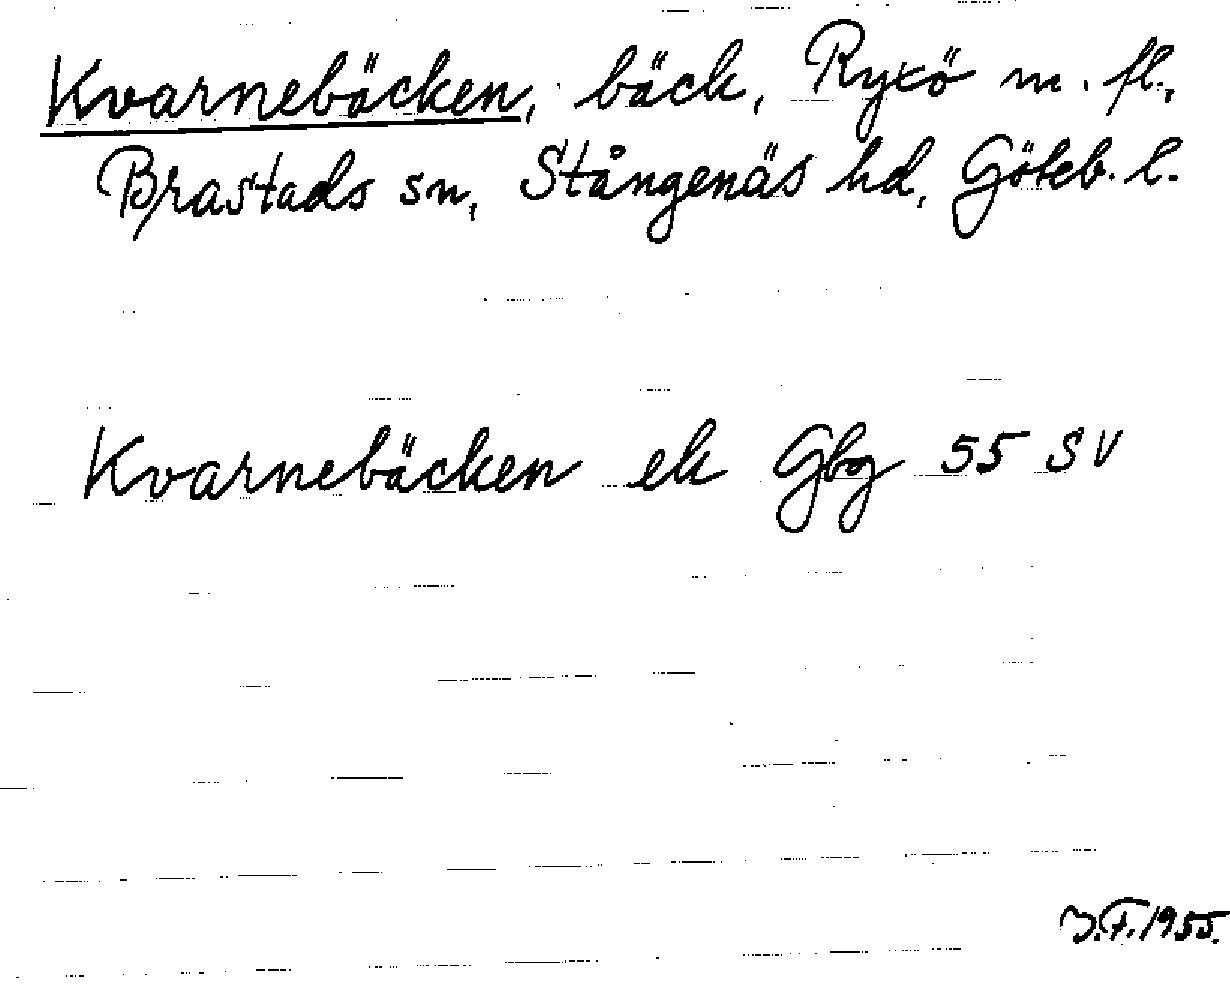 Kvarnebäcken, bäck, Ryxö m. fl.,
Brastads sn, Stångenäs hd, Göteb. l.
Kvarnebäcken ek Gbg 55 SV
J.F. 1955.